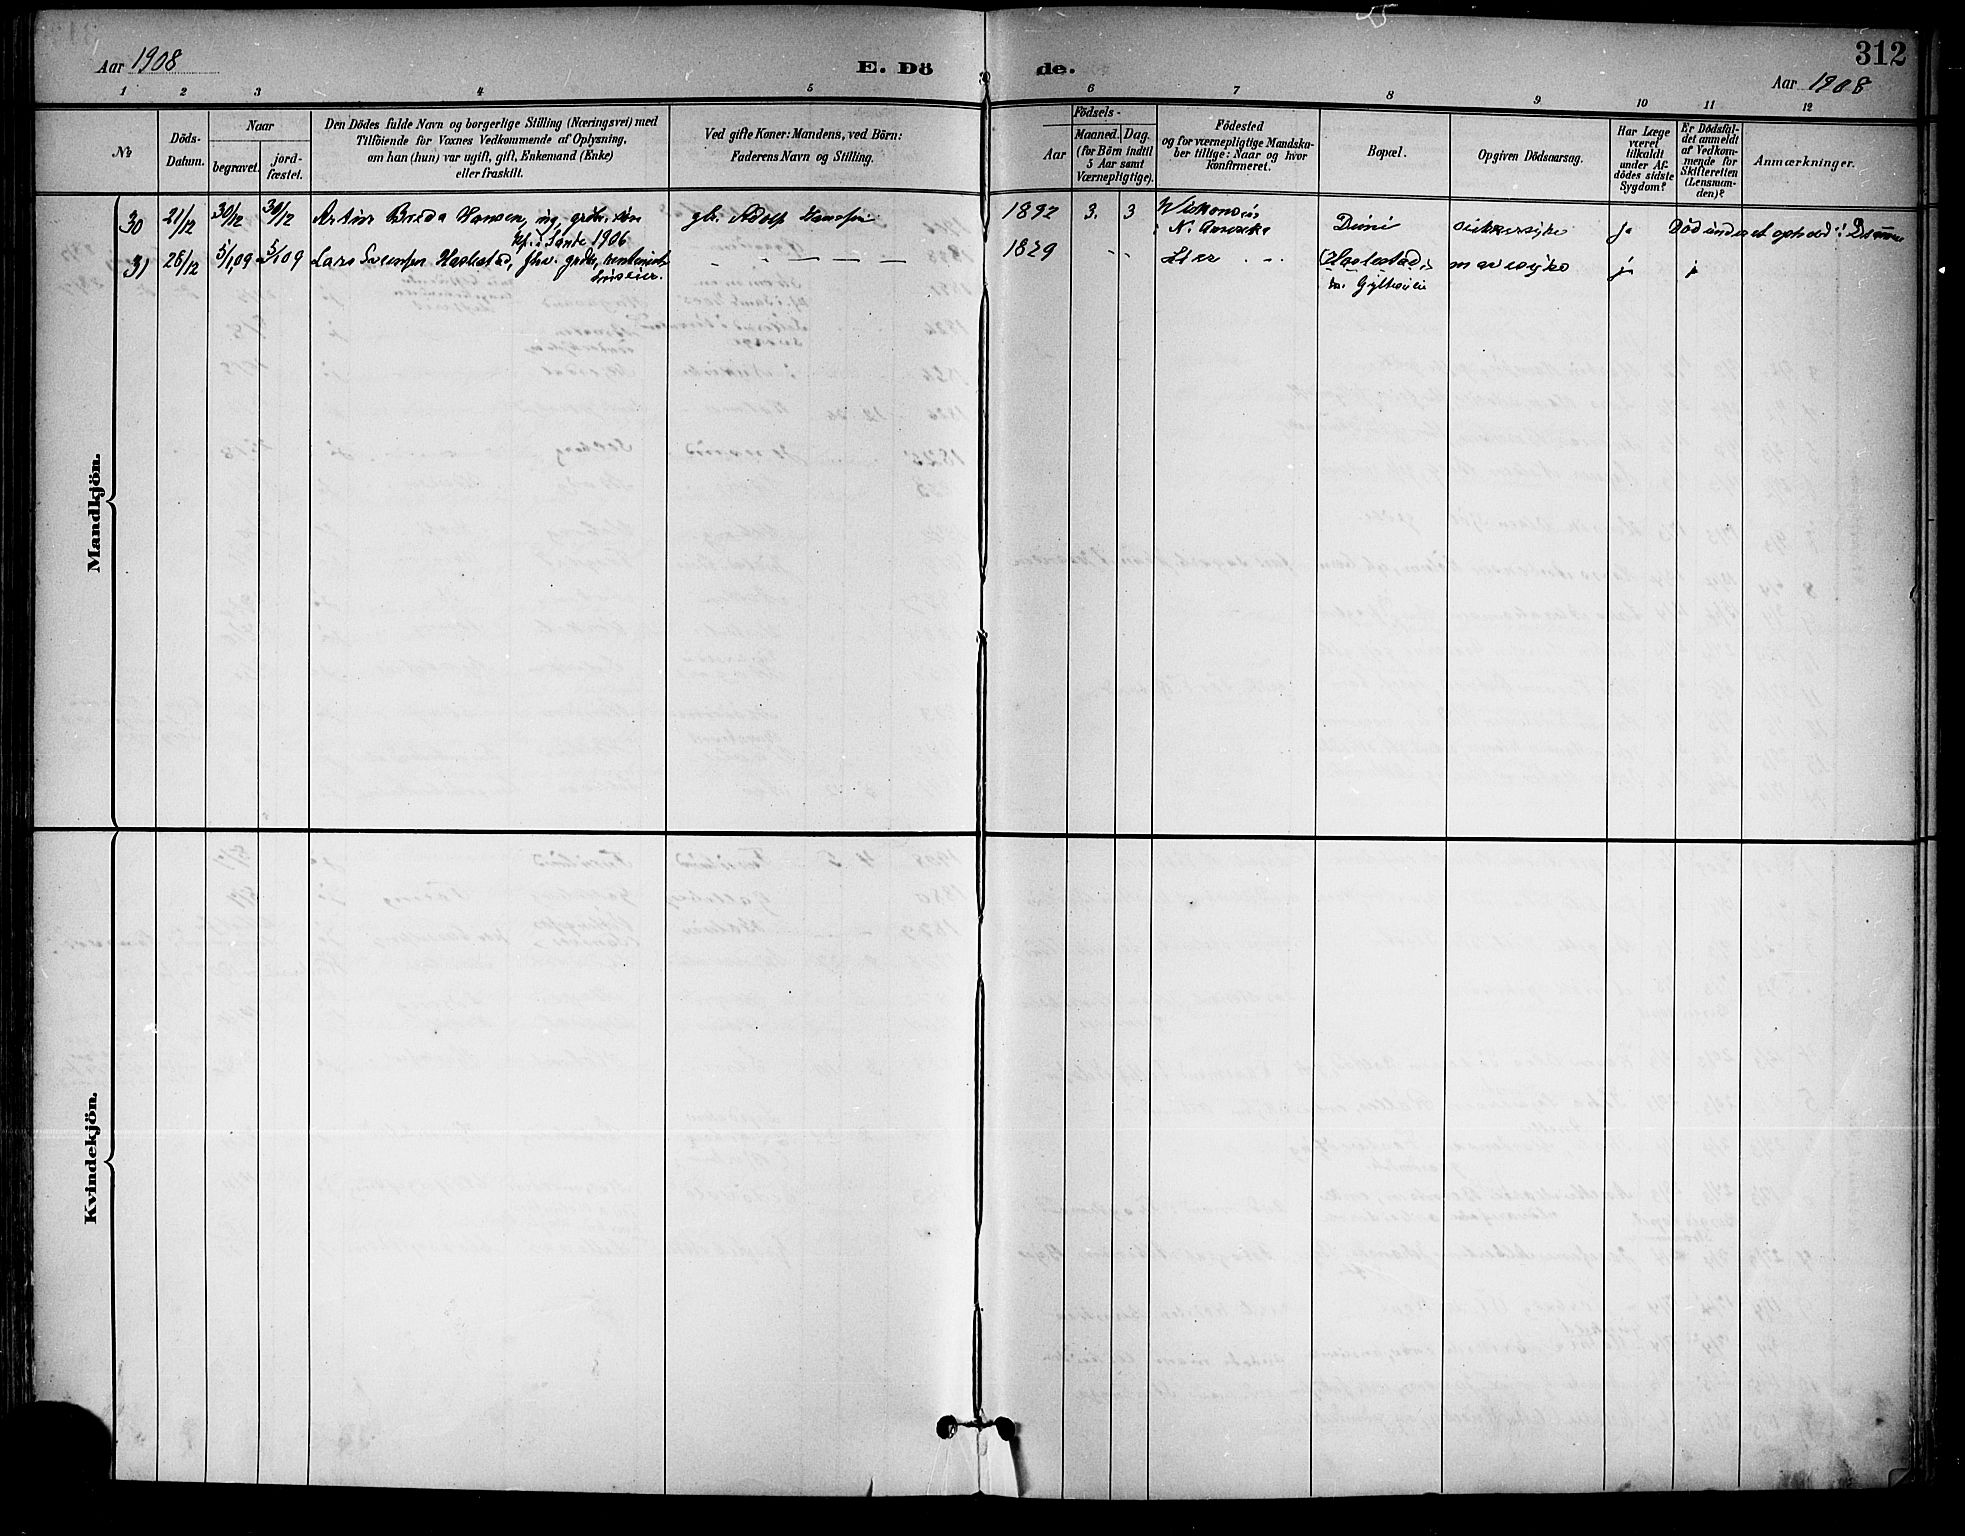 Aar 1908
E. Dö
de.
312
Aar 1908
1 2 3 4 5 6 7 8 9 10 11 12
№
Döds-
Datum.
Naar
begravet.
jord-
fæstet.
Den Dödes fulde Navn og borgerlige Stilling (Næringsvei) med
Tilföiende for Voxnes Vedkommende af Oplysning,
om han (hun) var ugift, gift, Enkemand (Enke)
eller fraskilt.
Ved gifte Koner: Mandens, ved Börn:
Faderens Navn og Stilling.
Födsels-
Aar
Maaned.
Dag.
(for Börn indtil
5 Aar samt
Værnepligtige).
Födested
og for værnepligtige Mandska-
ber tillige: Naar og hvor
konfirmeret.
Bopæl.
Opgiven Dödsaarsag.
Har Læge
været
tilkaldt
under Af-
dödes sidste
Sygdom?
Er Dödsfal-
det anmeldt
af Vedkom-
mende for
Skifteretten
(Lensman-
den)?
Anmærkninger.
Mandkjön.
30 21/12 30/12 30/12 Artur Hansen, ug. grbr. sön gbr. Adolf Hansen 1892 3. 3 Wiskonsin sukkersyke ja Död under et ophold i
kf. i Sande 1906 N. Amerika
31 26/12 5/1 09 5/1 09 Lars Svensen Haslestad, fhv. grbr, - - - - - 1829 - - Lier - - Haslestad mavesyke ja
huseier.
Kvindekjön.